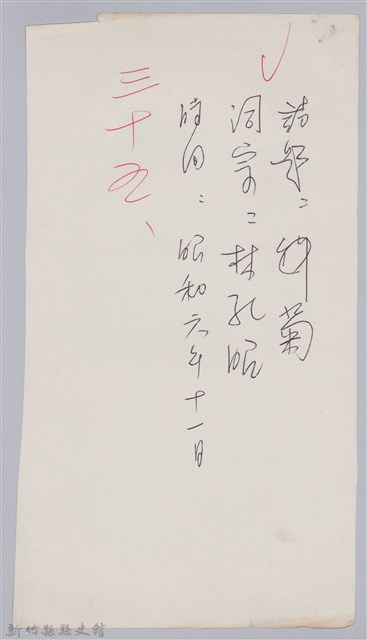 詩題：種菊
詞宗：林孔昭
時日：昭和六年十一月
三十九、
新竹縣縣史館